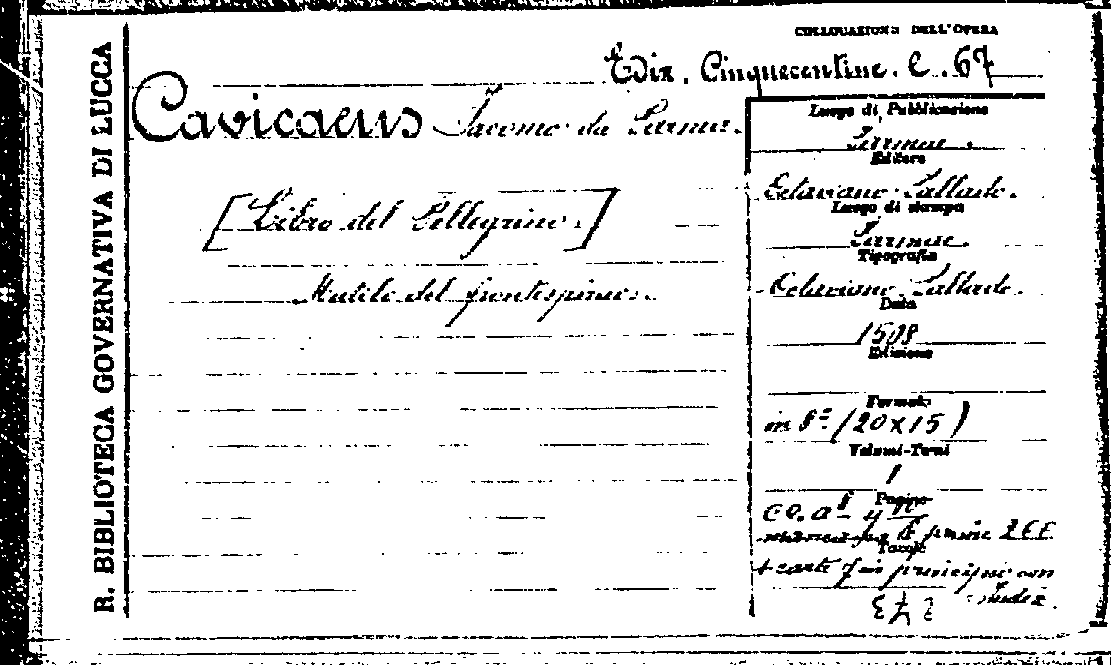 R. BIBLIOTECA GOVERNATIVA DI LUCCA
COLLOCAZIONE DELL'OPERA
Ediz. Cinquecentine. C. 67
Cavicaeus Jacomo da Parma.
[Libro del Pellegrino.]
Mutilo del frontespizio.
Luogo di Pubblicazione
Parmae.
Editore
Octaviano Sallado.
Luogo di stampa
Parmae.
Tipografia
Octaviano Sallado.
Data
1508
Edizione
Formato
in 8º (20x15)
Volumi-Tomi
1
Pagine
cc. a8
le prime 2 cc.
Tavole
+ carte 7 in principio con
Index.